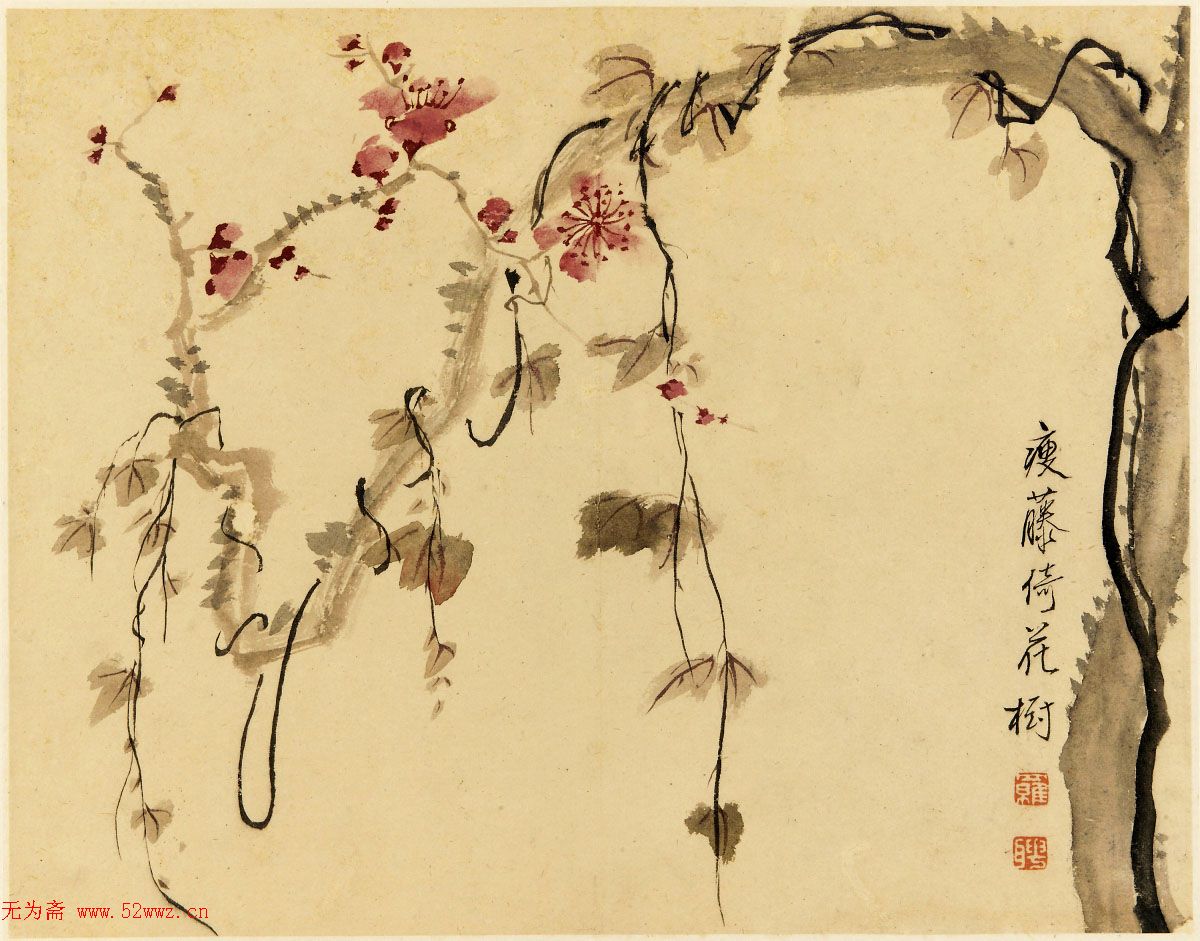 瘦藤倚花樹
羅
聘
无为斋 www.52wwz.cn